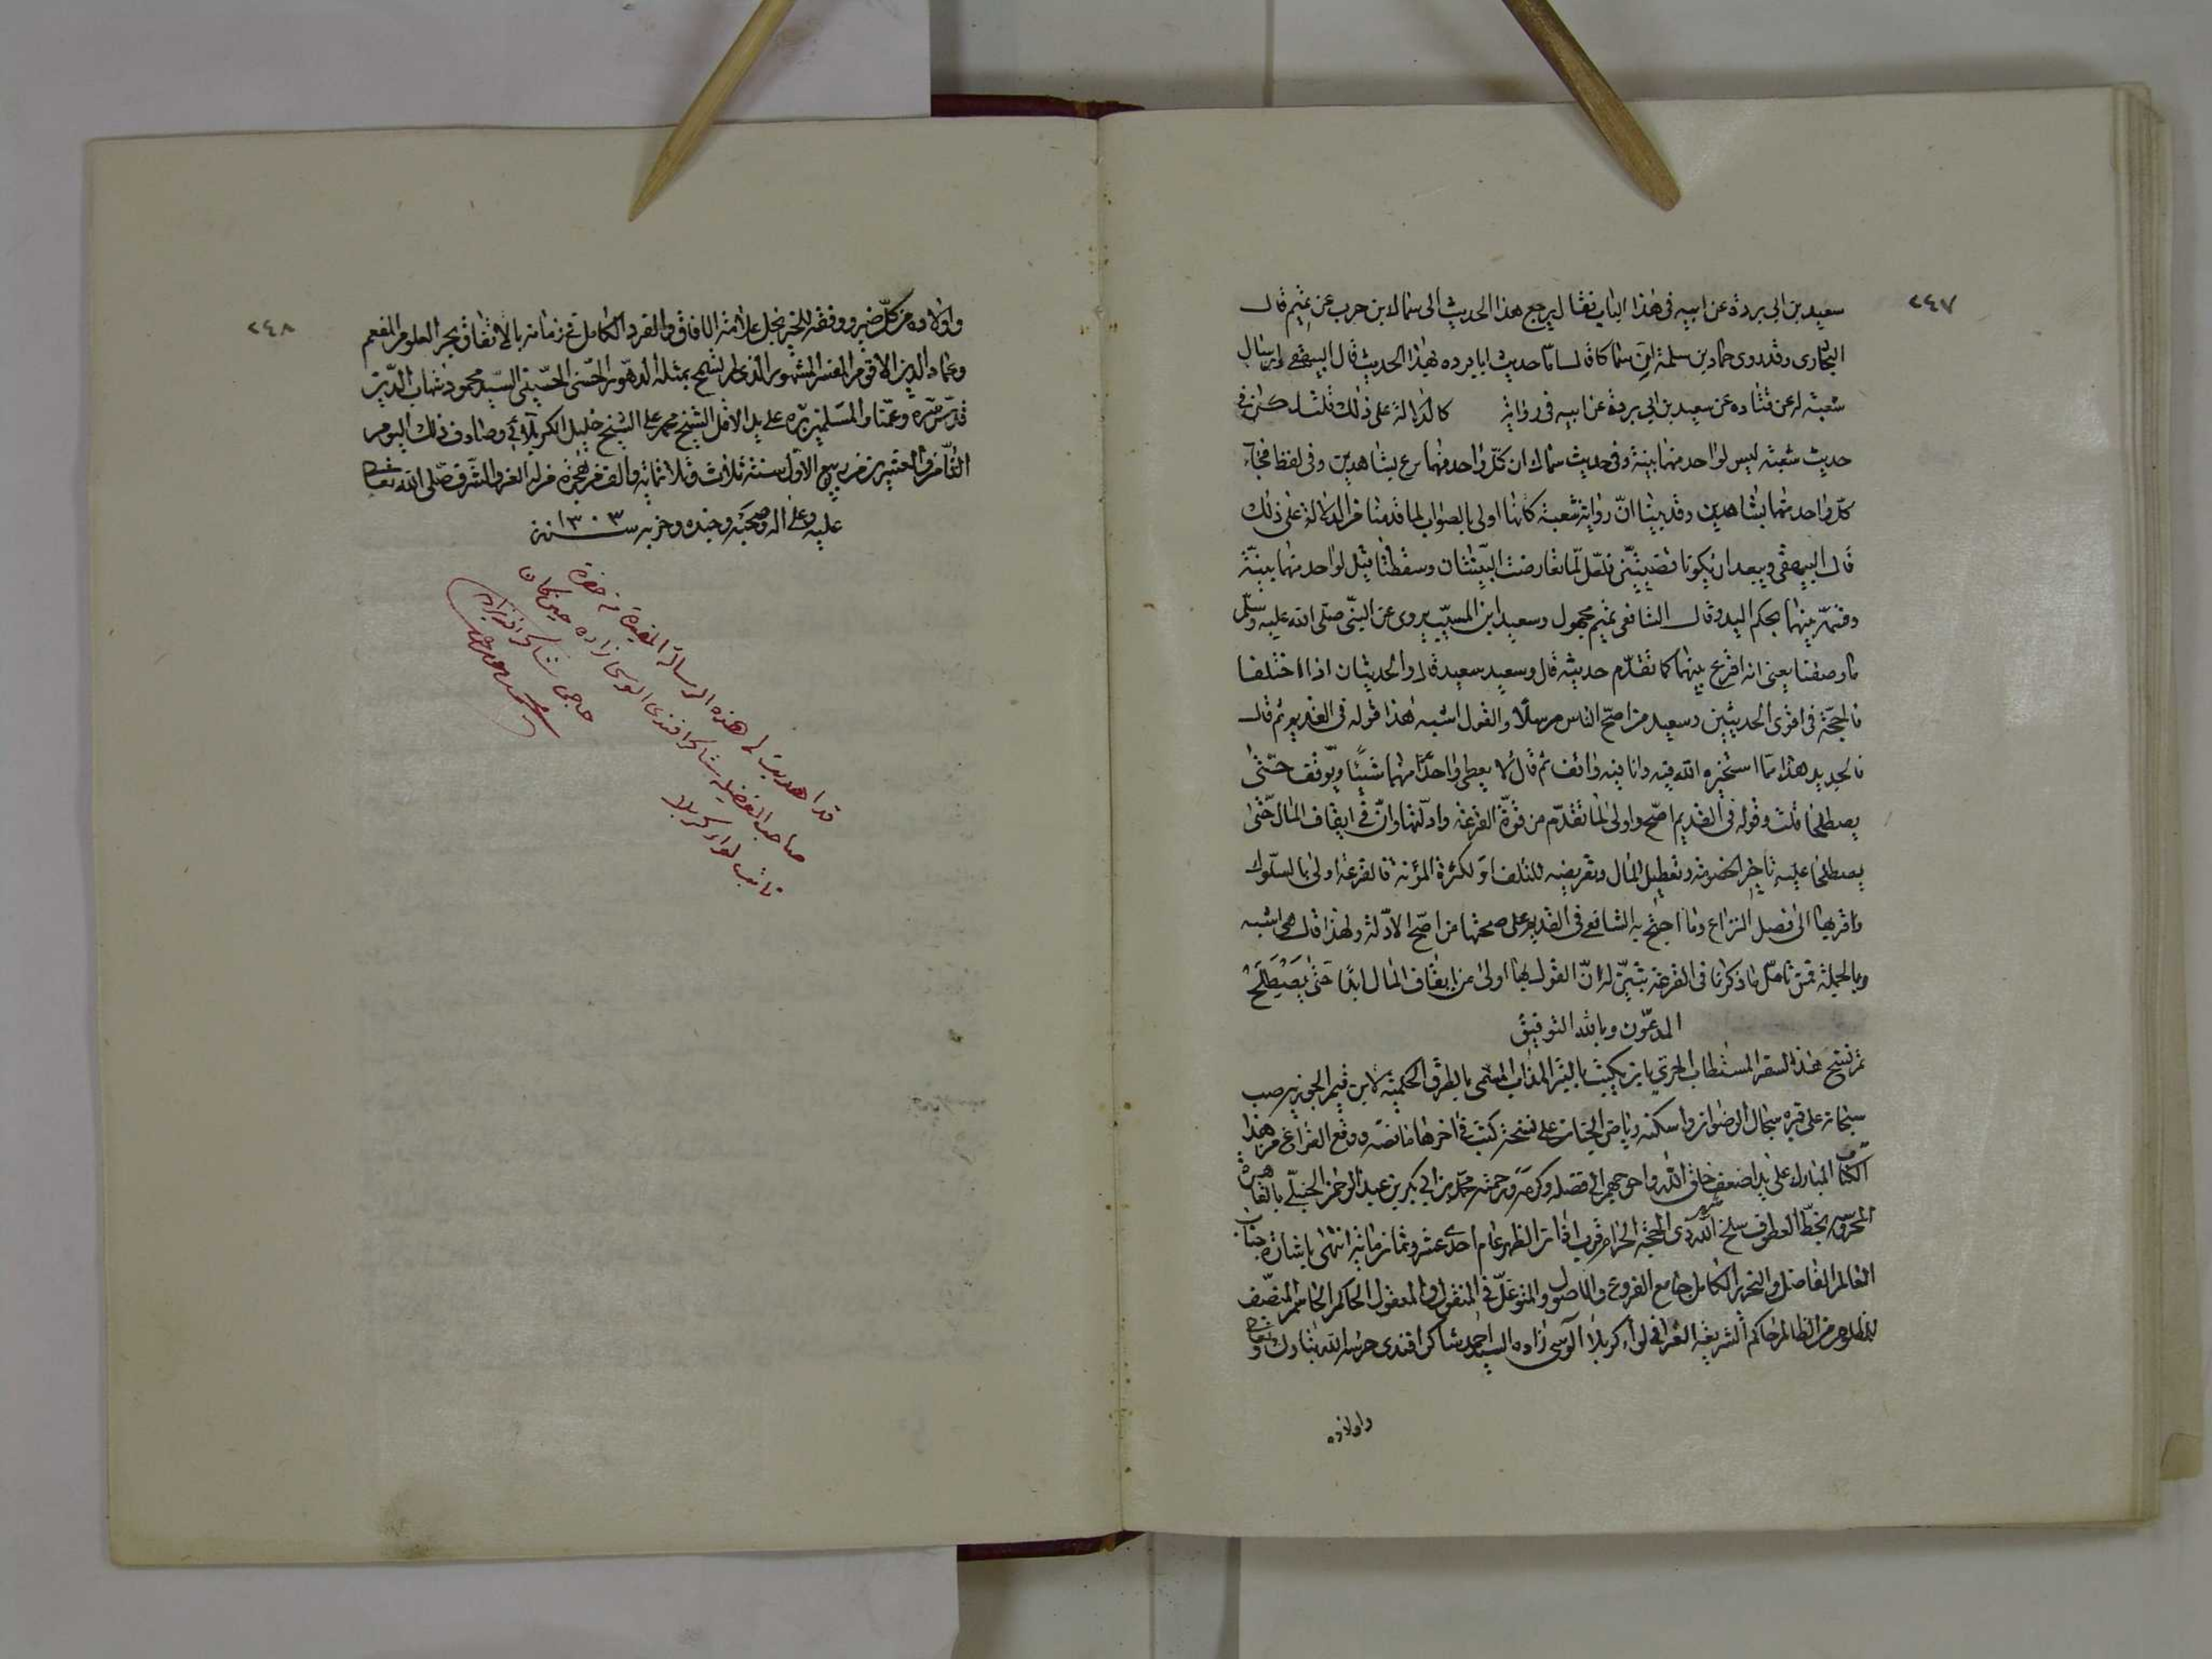 ٢٤٧
سعيد بن ابي بردة عن ابيه في هذا الباب فقال يرجع هذا الحديث الى سماك ابن حرب عن تميم قال
البخاري وقد روى حماد بن سلمة ان سماكا قال انا حدثت ابا بردة بهذا الحديث قال البيهقي وارسال
شعبة له عن قتادة عن سعيد بن ابي بردة عن ابيه في رواية كالدلالة على ذلك قلت لكن في
حديث شعبة ليس لواحد منهما بينة وفي حديث سماك ان كل واحد منهما برع بشاهدين وفي لفظ فجاء
كل واحد منهما بشاهدين وقد بينا ان رواية شعبة كانها اولى بالصواب لما قدمنا من الدلالة على ذلك
قال البيهقي ويبعد ان يكونا قضيتين فلعل لما تعارضت البينتان وسقطتا قيل لواحد منهما بينة
وقسم بينهما بحكم اليد وقال الشافعي تميم مجهول وسعيد ابن المسيب يروى عن النبي صلى الله عليه وسلم
ما وصفنا يعني انه اقرع بينهما كما تقدم حديثه قال وسعيد سعيد قال والحديثان اذا اختلفا
فالحجة في اقوى الحديثين وسعيد من اصح الناس مرسلا والقول اشبه هذا قوله في القديم ثم قال
في الجديد هذا مما استخير الله فيه وانا فيه واقف ثم قال لا يعطى واحدا منهما شيئا ويوقف حتى
يصطلحا قلت وقوله في القديم اصح واولى لما تقدم من قوة القرعة وادلتها وان في ايقاف المال حتى
يصطلحا عليه تاخير الخصومة وتعطيل المال وتعريضه للتلف او لكثرة المؤنة فالقرعة اولى بالسلوك
واقربها الى فصل النزاع وما احتج به الشافعي في القديم على صحتها من اصح الادلة ولهذا قال هي اشبه
وبالجملة فمن تامل ما ذكرنا في القرعة تبين له ان القول بها اولى من ايقاف المال ابدا حتى يصطلح
المدعون وبالله التوفيق
تم نسخ هذا السفر المستطاب الحري بان يكتب بالتبر المذاب المسمى بالطرق الحكمية لابن قيم الجوزية صب
سبحانه على قبره سجال الرضوان واسكنه رياض الجنان على نسخة كتب في اخرها ما نصه ووقع الفراغ من هذا
الكتاب المبارك على يد اضعف خلق الله واحوجهم الى فضله وكرمه ورحمته محمد بن ابي بكر بن عبد الرحمن الحنبلي بالقاهرة
المحروسة بخط العطوف سلخ شهر الله ذي الحجة الحرام قريب اذان الظهر عام احدى عشر وثمانمائة انتهى باشارة جناب
العالم الفاضل والنحرير الكامل جامع الفروع والاصول والمتوغل في المنقول والمعقول الحاكم الحاسم المنصف
للمظلوم من الظالم حاكم الشريعة الغراء في لواء كربلا آلوسى زاده السيد احمد شاكر افندى حرسه الله تبارك وتعالى
واولاده
٢٤٨
واولاده من كل ضير ووفقه للخير نجل علامة الافاق والفرد الكامل في زمانه بالاتفاق بحر العلوم المفعم
وعماد الدين الاقوم المفسر المشهور الذي لم تسمح بمثله الدهور الحسني الحسيني السيد محمود شهاب الدين
قدس سره وعمنا والمسلمين بره على يد الاقل الشيخ محمد علي الشيخ خليل الكربلائي وصادف ذلك اليوم
الثامن والعشرين من ربيع الاول سنة ثلاث وثلاثمائة والف من هجرة من له العز والشرف صلى الله تعالى
عليه وعلى اله وصحبه وجنده وحزبه سنة ١٣٠٣
قد اهديت لي هذه الرسالة المفيدة من حضرة
صاحب الفضيلة شاكر افندى الوسى زاده حين كان
نائب لواء كربلا